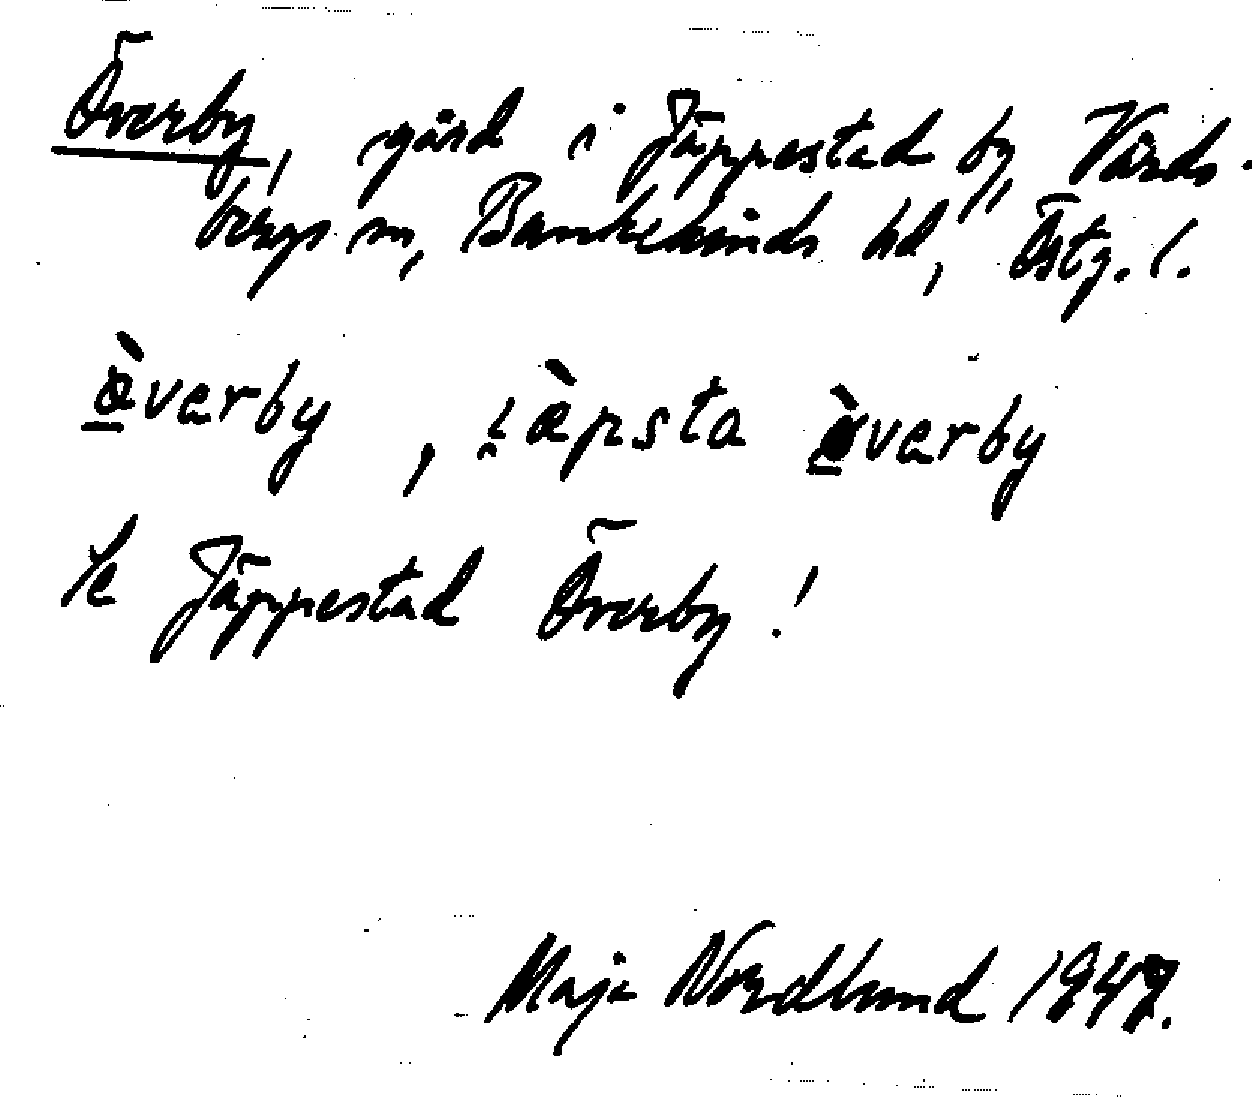 Överby, gård i Jäppestad by, Vårds-
bergs sn, Bankekinds hd, Östg. l.
ὰ̲verby, i̯ æ̀psta ὰ̲verby
Se Jäppestad Överby!
Maja Nordlund 1947.